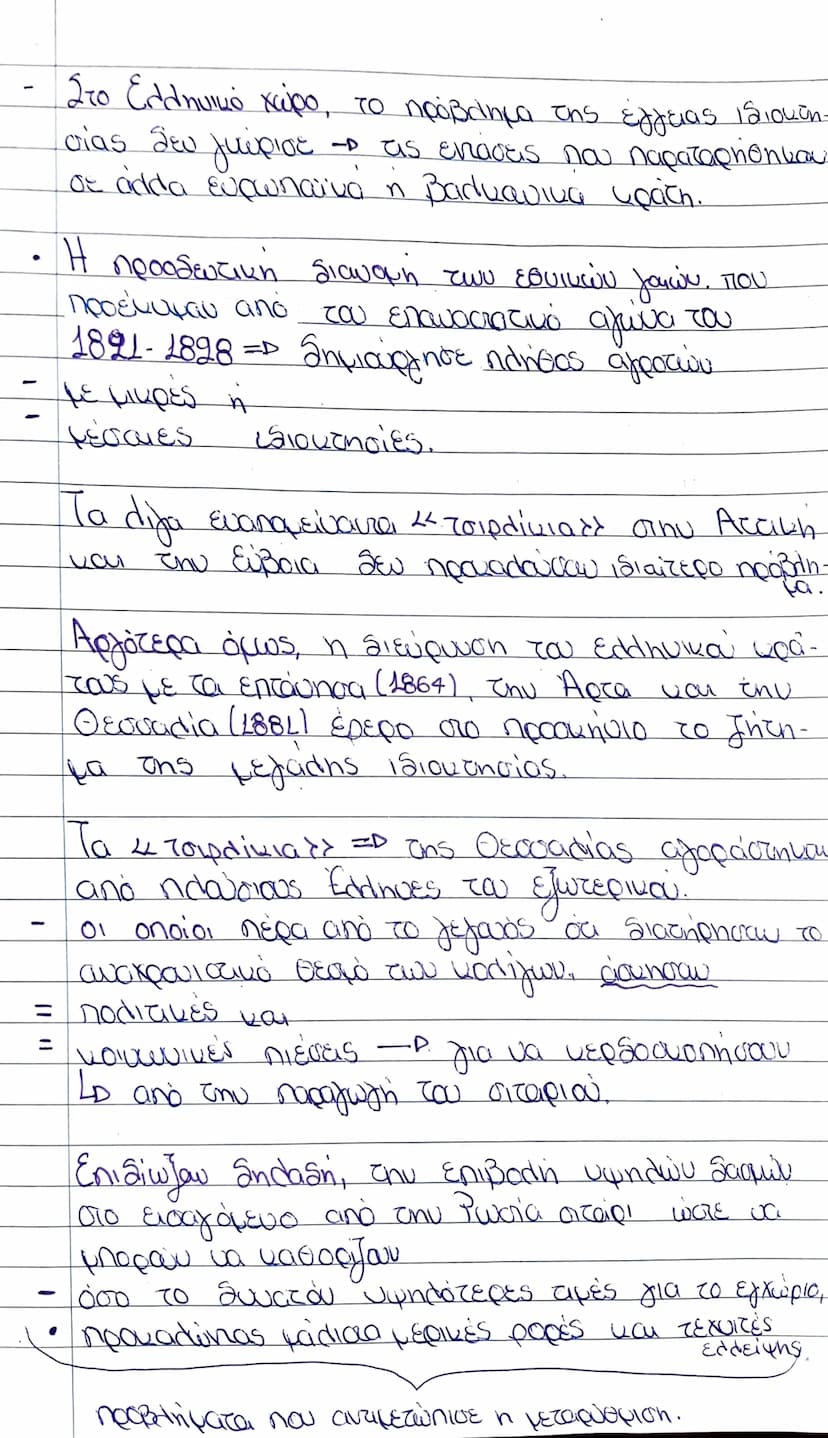 - Στο Ελληνικό χώρο, το πρόβλημα της έγγειας ιδιοκτη-
σίας δεν γνώρισε → τις εντάσεις που παρατηρήθηκαν
σε άλλα ευρωπαϊκά ή βαλκανικά κράτη.
• Η προοδευτική διανομή των εθνικών γαιών. που
προέκυψαν από τον επαναστατικό αγώνα του
1821-1828 ⇒ δημιούργησε πλήθος αγροτών
- με μικρές ή
- μέσαιες ιδιοκτησίες.
Τα λίγα εναπομείναντα << τσιφλίκια>> στην Αττική
και την Εύβοια δεν προκαλούσαν ιδιαίτερο πρόβλη-
μα.
Αργότερα όμως, η διεύρυνση του ελληνικού κρά-
τους με τα επτάνησα (1864), την Άρτα και την
Θεσσαλία (1881) έφερε στο προσκήνιο το ζήτη-
μα της μεγάλης ιδιοκτησίας.
Τα << τσιφλίκια>> ⇒ της Θεσσαλίας αγοράστηκαν
από πλούσιους Έλληνες του εξωτερικού.
- οι οποίοι πέρα από το γεγονός ότι διατήρησαν το
αναχρονιστικό θεσμό των κολίγων, άσκησαν
= πολιτικές και
= κοινωνικές πιέσεις → για να κερδοσκοπήσουν
↳ από την παραγωγή του σιταριού.
Επιδίωξαν δηλαδή, την επιβολή υψηλών δασμών
στο εισαγόμενο από την Ρωσία σιτάρι ώστε να
μπορούν να καθορίζουν
- όσο το δυνατόν υψηλότερες τιμές για το εγχώριο,
• προκαλώντας μάλιστα μερικές φορές και τεχνιτές
ελλείψης.
προβλήματα που αντιμετώπισε η μεταρύθμιση.